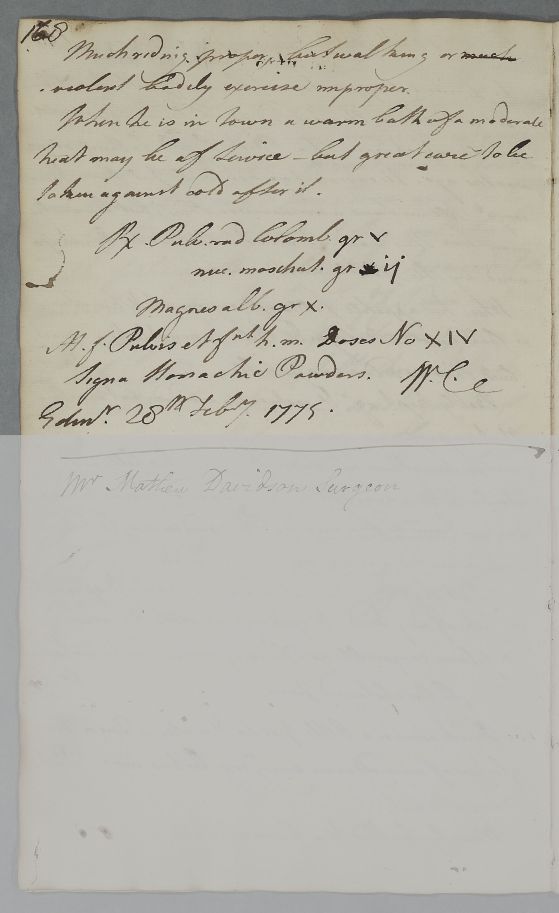 168
Much riding proper, but walking or much
violent bodily exercise improper.
When he is in Town a warm bath of a moderate
heat may be of Service – but great care to be
taken against cold after it.
Rx. Pulv. rad Colomb. gr v
nuc. moschat. gr ij
Magnes alb. gr X.
M. f. Pulvis et f nt h. m. Doses No XIV
Signa Stomachic Powders. W. C.
Edinr. 28th Feby. 1775.
Mr Mathew Davidson Surgeon